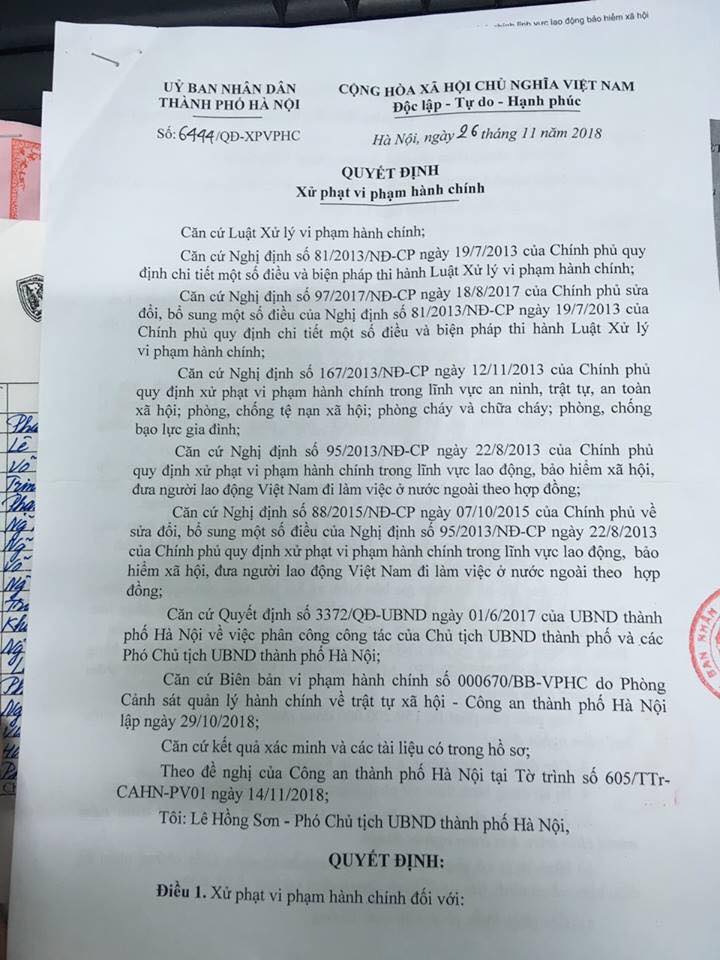 chính lĩnh vực lao động bảo hiểm xã hội
UỶ BAN NHÂN DÂN
THÀNH PHỐ HÀ NỘI
Số: 6444/QĐ-XPVPHC
CỘNG HÒA XÃ HỘI CHỦ NGHĨA VIỆT NAM
Độc lập - Tự do - Hạnh phúc
Hà Nội, ngày 26 tháng 11 năm 2018
QUYẾT ĐỊNH
Xử phạt vi phạm hành chính
Căn cứ Luật Xử lý vi phạm hành chính;
Căn cứ Nghị định số 81/2013/NĐ-CP ngày 19/7/2013 của Chính phủ quy
định chi tiết một số điều và biện pháp thi hành Luật Xử lý vi phạm hành chính;
Căn cứ Nghị định số 97/2017/NĐ-CP ngày 18/8/2017 của Chính phủ sửa
đổi, bổ sung một số điều của Nghị định số 81/2013/NĐ-CP ngày 19/7/2013 của
Chính phủ quy định chi tiết một số điều và biện pháp thi hành Luật Xử lý
vi phạm hành chính;
Căn cứ Nghị định số 167/2013/NĐ-CP ngày 12/11/2013 của Chính phủ
quy định xử phạt vi phạm hành chính trong lĩnh vực an ninh, trật tự, an toàn
xã hội; phòng, chống tệ nạn xã hội; phòng cháy và chữa cháy; phòng, chống
bạo lực gia đình;
Căn cứ Nghị định số 95/2013/NĐ-CP ngày 22/8/2013 của Chính phủ
quy định xử phạt vi phạm hành chính trong lĩnh vực lao động, bảo hiểm xã hội,
đưa người lao động Việt Nam đi làm việc ở nước ngoài theo hợp đồng;
Căn cứ Nghị định số 88/2015/NĐ-CP ngày 07/10/2015 của Chính phủ về
sửa đổi, bổ sung một số điều của Nghị định số 95/2013/NĐ-CP ngày 22/8/2013
của Chính phủ quy định xử phạt vi phạm hành chính trong lĩnh vực lao động, bảo
hiểm xã hội, đưa người lao động Việt Nam đi làm việc ở nước ngoài theo hợp
đồng;
Căn cứ Quyết định số 3372/QĐ-UBND ngày 01/6/2017 của UBND thành
phố Hà Nội về việc phân công công tác của Chủ tịch UBND thành phố và các
Phó Chủ tịch UBND thành phố Hà Nội;
Căn cứ Biên bản vi phạm hành chính số 000670/BB-VPHC do Phòng
Cảnh sát quản lý hành chính về trật tự xã hội - Công an thành phố Hà Nội
lập ngày 29/10/2018;
Căn cứ kết quả xác minh và các tài liệu có trong hồ sơ;
Theo đề nghị của Công an thành phố Hà Nội tại Tờ trình số 605/TTr-
CAHN-PV01 ngày 14/11/2018;
Tôi: Lê Hồng Sơn - Phó Chủ tịch UBND thành phố Hà Nội,
QUYẾT ĐỊNH:
Điều 1. Xử phạt vi phạm hành chính đối với:
BAN NHÂN
Lê
Võ